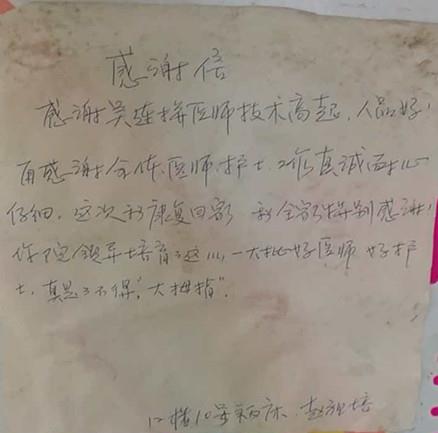 感谢信
感谢吴连拼医师技术高超，人品好！
再感谢全体医师护士，工作真诚耐心
仔细，这次我康复回家，我全家特别感谢！
你院领导培育了这么一大批好医师好护
士，真是了不得，“大拇指”。
12楼10号病床